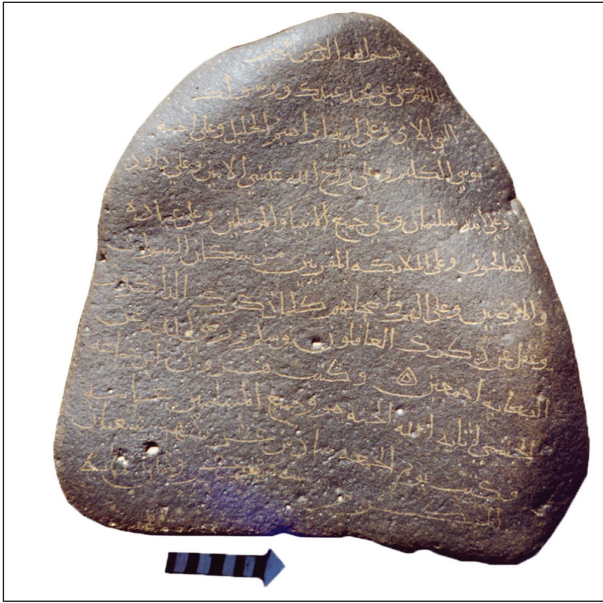 بسم الله الرحمن الرحيم
اللهم صلي على محمد عبدك ورسولك
النبي الامي وعلى ابيه ابراهيم الخليل وعلى اخيه
موسى الكليم وعلى روح الله عيسى الامين وعلى داود
وعلى ابنه سليمان وعلى جميع الانبيا والمرسلين وعلى عباده
الصالحين وعلى الملايكه المقربين من سكان السموات
والارضين وعلى الهم واصحابهم كلما ذكرك الذاكرون
وغفل عن ذكرك الغافلون وسلم ورضي الله عن
الصحابه اجمعين وكتب
اثابه الله الجنه هو وجميع المسلمين
وكتب يوم الجمعه سادس عشر شهر شعبان